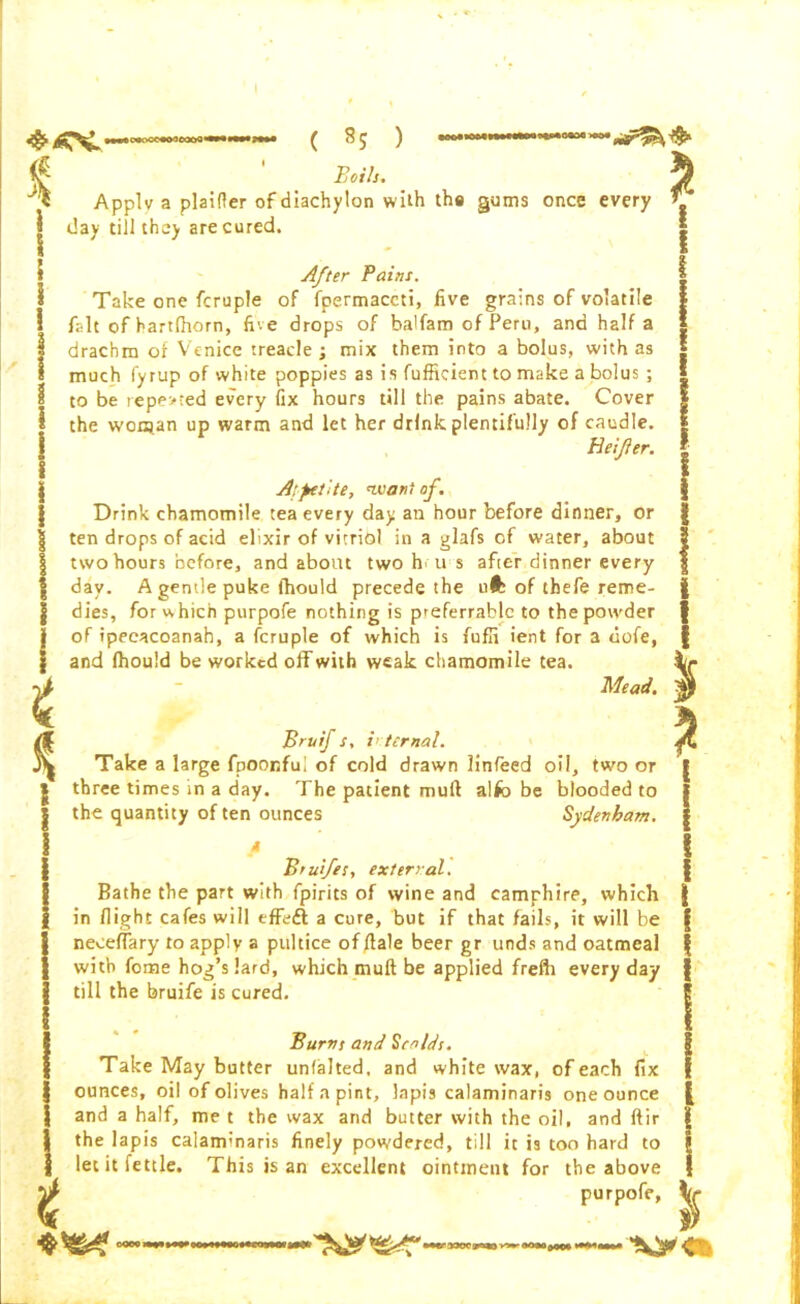 ( 85 )
Boils.
Apply a plaiſter of diachylon with the gums once every
day till they are cured.
After Pains.
Take one ſcruple of ſpermaceti, five grains of volatile
ſalt of hartſhorn, five drops of balſam of Peru, and half a
drachm of Venice treacle ; mix them into a bolus, with as
much ſyrup of white poppies as is ſufficient to make a bolus ;
to be repeated every ſix hours till the pains abate. Cover
the woman up warm and let her drink plentifully of caudle.
Heiſter.
Appetite, want of.
Drink chamomile tea every day an hour before dinner, or
ten drops of acid elixir of vitriol in a glaſs of water, about
two hours before, and about two h u s after dinner every
day. A gentle puke ſhould precede the uſe of theſe reme-
dies, for which purpoſe nothing is preferrable to the powder
of ipecacoanah, a ſcruple of which is ſuffi ient for a doſe,
and ſhould be worked off with weak chamomile tea.
Mead.
Bruiſ s, i ternal.
Take a large ſpoonful of cold drawn linſeed oil, two or
three times in a day. The patient muſt alſo be blooded to
the quantity of ten ounces
Sydenham.
Bruiſes, external.
Bathe the part with ſpirits of wine and camphire, which
in ſlight caſes will effect a cure, but if that fails, it will be
neceſſary to apply a pultice of ſtale beer gr unds and oatmeal
with ſome hog's lard, which muſt be applied freſh every day
till the bruiſe is cured.
Burns and Scalds.
Take May butter unſalted, and white wax, of each ſix
ounces, oil of olives half a pint, lapis calaminaris one ounce
and a half, me t the wax and butter with the oil, and ſtir
the lapis calaminaris finely powdered, till it is too hard to
let it ſettle. This is an excellent ointment for the above
purpoſe,